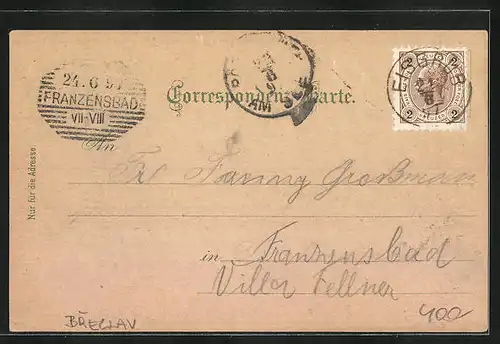 24. 6 97
FRANZENSBAD
VII-VIII
Correspondenz-Karte.
2 2
An
Fr Fanny Großmann
in Franzensbad
Villa Fellner
Nur für die Adresse.
BŘECLAV
400